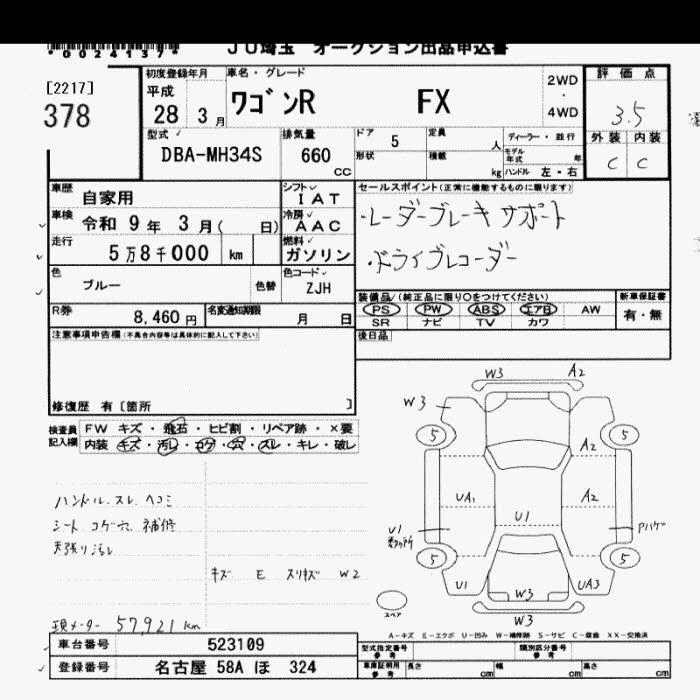 *0024137*
JU埼玉 オークション出品申込書
[2217]
378
初度登録年月
平成
28 3月
車名・グレード
ワゴンR FX
2WD
・
4WD
評価点
3.5
外装 内装
C C
型式
DBA-MH34S
排気量
660 CC
ドア 5
定員 人
形状
積載 kg
ディーラー・並行
モデル年式 年
ハンドル 左・右
車歴 自家用
シフト IAT
車検 令和 9年 3月( 日)
冷房 AAC
走行 5万8千000 km
燃料 ガソリン
色 ブルー 色替
色コード ZJH
R券 8,460円
名変通知期限 月 日
セールスポイント(正常に機能するものに限ります)
・レーダーブレーキサポート
・ドライブレコーダー
装備品(純正品に限り○をつけてください)
PS PW ABS エアB AW
SR ナビ TV カワ
新車保証書
有・無
後日品
注意事項申告欄(不具合内容等は具体的に記入して下さい)
修復歴 有〔箇所 〕
検査員記入欄
FW キズ・飛石・ヒビ割・リペア跡・×要
内装 キズ・汚レ・コゲ・穴・スレ・キレ・破レ
ハンドル、スレ、ヘコミ
シート コゲ穴 補修
天張り汚レ
キズ E スリキズ W2
現メーター 57,921km
W3 A2
W3
5 5
A2
UA1 A2
U1
U1
Pハゲ
5 5
U1 W3 UA3
W3
スペア
A-キズ E-エクボ U-凹み W-補修跡 S-サビ C-腐蝕 XX-交換済
車台番号 523109
登録番号 名古屋 58A ほ 324
型式指定番号 参考
類別区分番号 参考
車庫証明用 参考
長さ cm 幅 cm 高さ cm